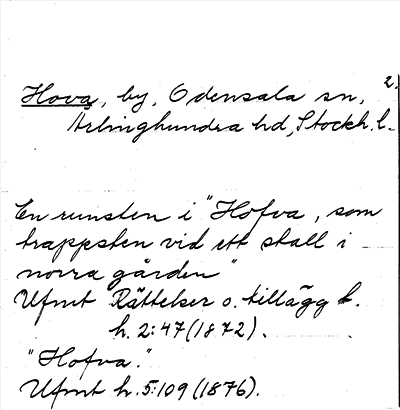 2.
Hova, by, Odensala sn,
Ärlinghundra hd, Stockh. l.
En runsten i "Hofva, som
trappsten vid ett stall i
norra gården"
Ufmt Rättelser o. tillägg t.
h. 2:47 (1872).
"Hofva."
Ufmt h. 5:109 (1876).